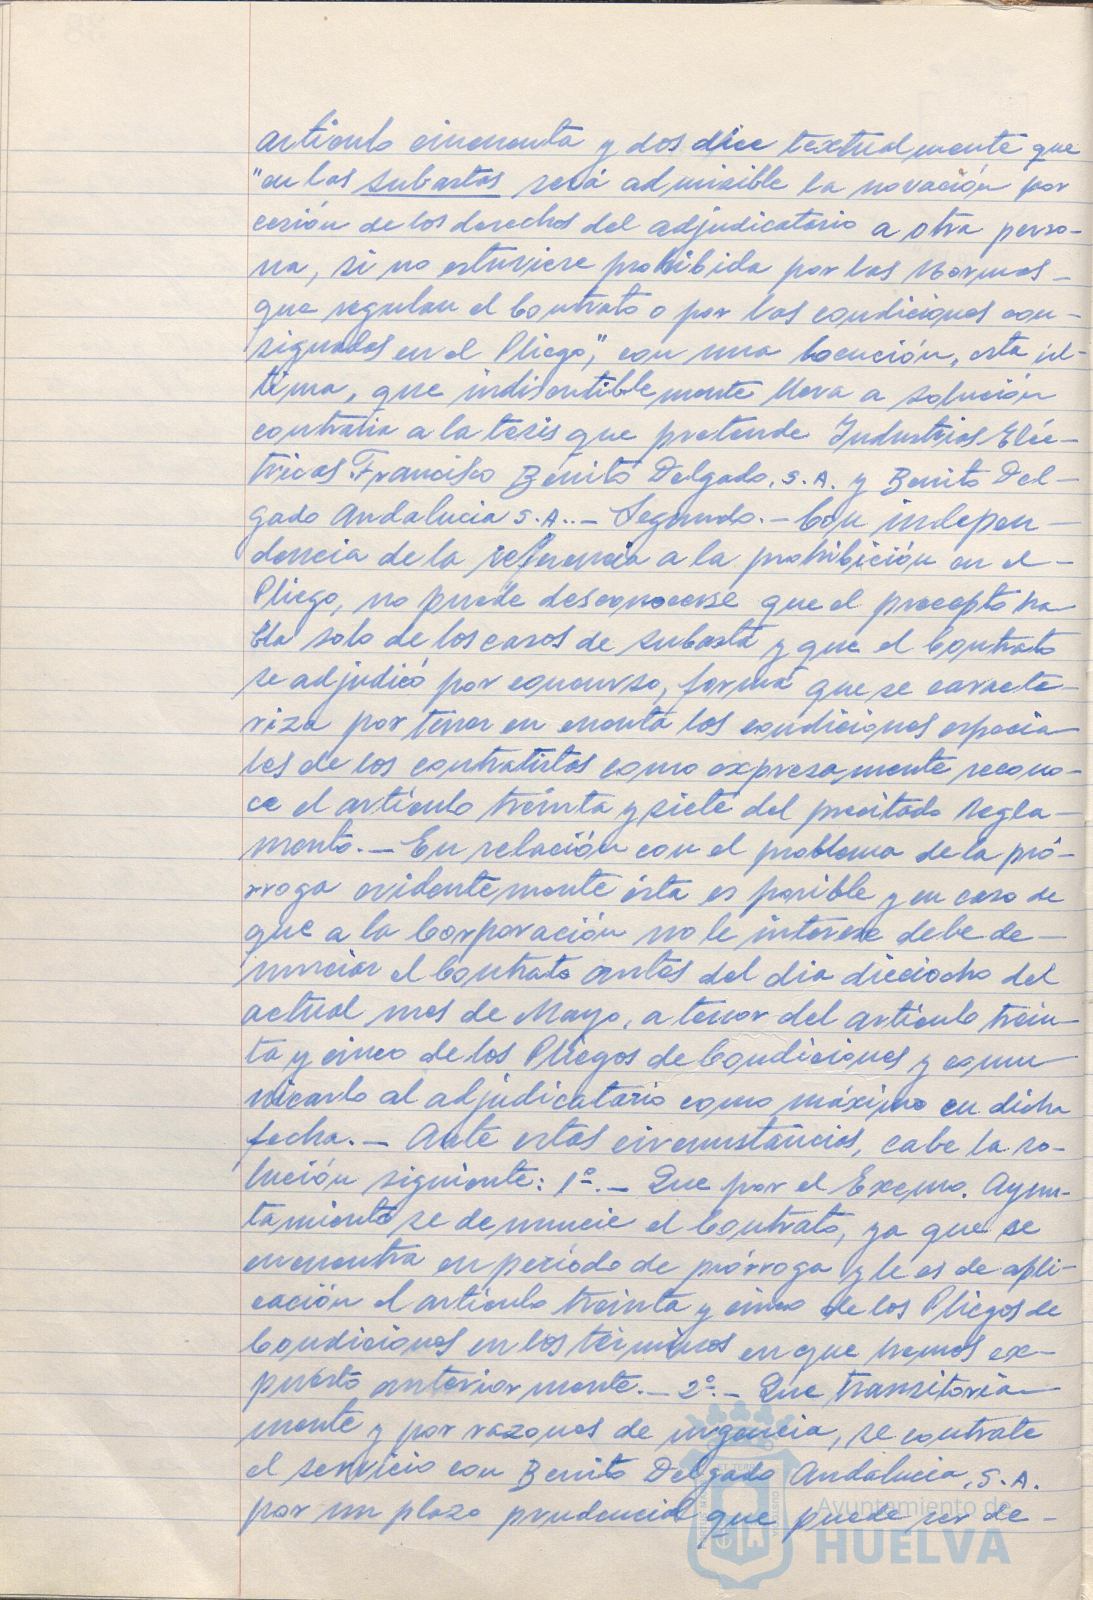 artículo cincuenta y dos dice textualmente que
"en las subastas será admisible la novación por
cesión de los derechos del adjudicatario a otra perso-
na, si no estuviere prohibida por las Normas
que regulan el Contrato o por las condiciones con-
signadas en el Pliego", con una locución, esta úl-
tima, que indiscutiblemente lleva a solución
contraria a la tesis que pretende Industrias Eléc-
tricas Francisco Benito Delgado, S.A. y Benito Del-
gado Andalucia S.A.. — Segundo. — Con indepen-
dencia de la referencia a la prohibición en el
Pliego, no puede desconocerse que el precepto ha
bla solo de los casos de subasta y que el Contrato
se adjudicó por concurso, forma que se caracte-
riza por tener en cuenta las condiciones especia
les de los contratistas como expresamente recono-
ce el artículo treinta y siete del precitado Regla-
mento. — En relación con el problema de la pró-
rroga evidentemente ésta es posible y en caso de
que a la Corporación no le interese debe de-
nunciar el Contrato antes del dia dieciocho del
actual mes de Mayo, a tenor del artículo trein-
ta y cinco de los Pliegos de Condiciones y comu
nicarlo al adjudicatario como máximo en dicha
fecha. — Ante estas circunstancias, cabe la so-
lución siguiente: 1º. — Que por el Excmo. Ayun-
tamiento se denuncie el Contrato, ya que se
encuentra en período de prórroga y le es de apli-
cación el artículo treinta y cinco de los Pliegos de
Condiciones en los términos en que hemos ex-
puesto anteriormente. — 2º. — Que transitoria
mente y por razones de urgencia, se contrate
el servicio con Benito Delgado Andalucia, S.A.
por un plazo prudencial que puede ser de-
Ayuntamiento de
HUELVA